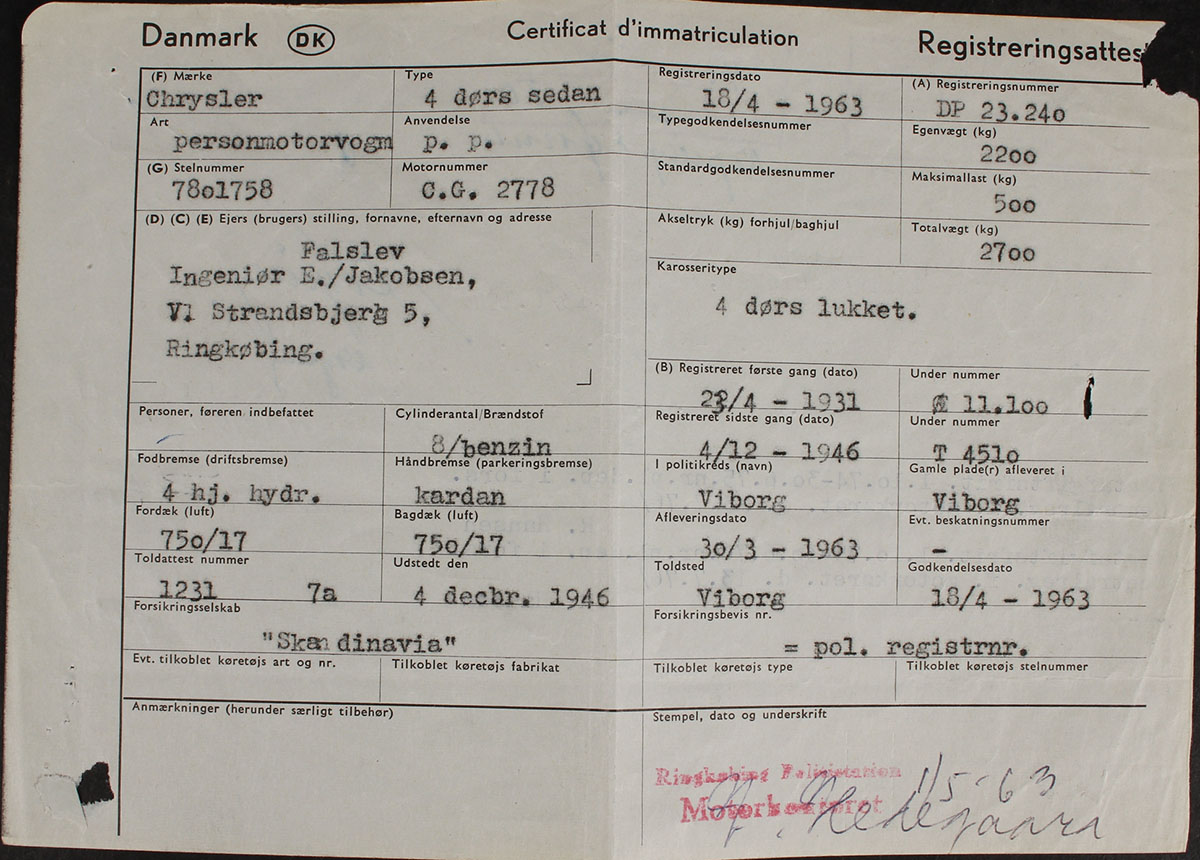 Danmark DK Certificat d'immatriculation Registreringsattes
(F) Mærke Type Registreringsdato (A) Registreringsnummer
Chrysler 4 dørs sedan 18/4 - 1963 DP 23.240
Art Anvendelse Typegodkendelsesnummer Egenvægt (kg)
personmotorvogm p. p. 2200
(G) Stelnummer Motornummer Standardgodkendelsesnummer Maksimallast (kg)
7801758 C.G. 2778 500
(D) (C) (E) Ejers (brugers) stilling, fornavne, efternavn og adresse Akseltryk (kg) forhjul/baghjul Totalvægt (kg)
2700
Falslev
Ingeniør E./Jakobsen,
Vl Strandsbjerg 5,
Ringkøbing.
Karosseritype
4 dørs lukket.
(B) Registreret første gang (dato) Under nummer
/4 - 1931 11.100
Personer, føreren indbefattet Cylinderantal/Brændstof Registreret sidste gang (dato) Under nummer
8/benzin 4/12 - 1946 T 4510
Fodbremse (driftsbremse) Håndbremse (parkeringsbremse) I politikreds (navn) Gamle plade(r) afleveret i
4 hj. hydr. kardan Viborg Viborg
Fordæk (luft) Bagdæk (luft) Afleveringsdato Evt. beskatningsnummer
750/17 750/17 30/3 - 1963 -
Toldattest nummer Udstedt den Toldsted Godkendelsesdato
1231 7a 4 decbr. 1946 Viborg 18/4 - 1963
Forsikringsselskab Forsikringsbevis nr.
"Skandinavia" = pol. registrnr.
Evt. tilkoblet køretøjs art og nr. Tilkoblet køretøjs fabrikat Tilkoblet køretøjs type Tilkoblet køretøjs stelnummer
Anmærkninger (herunder særligt tilbehør) Stempel, dato og underskrift
Ringkøbing Politistation 1/5-63
Motorkontoret Hedegaard